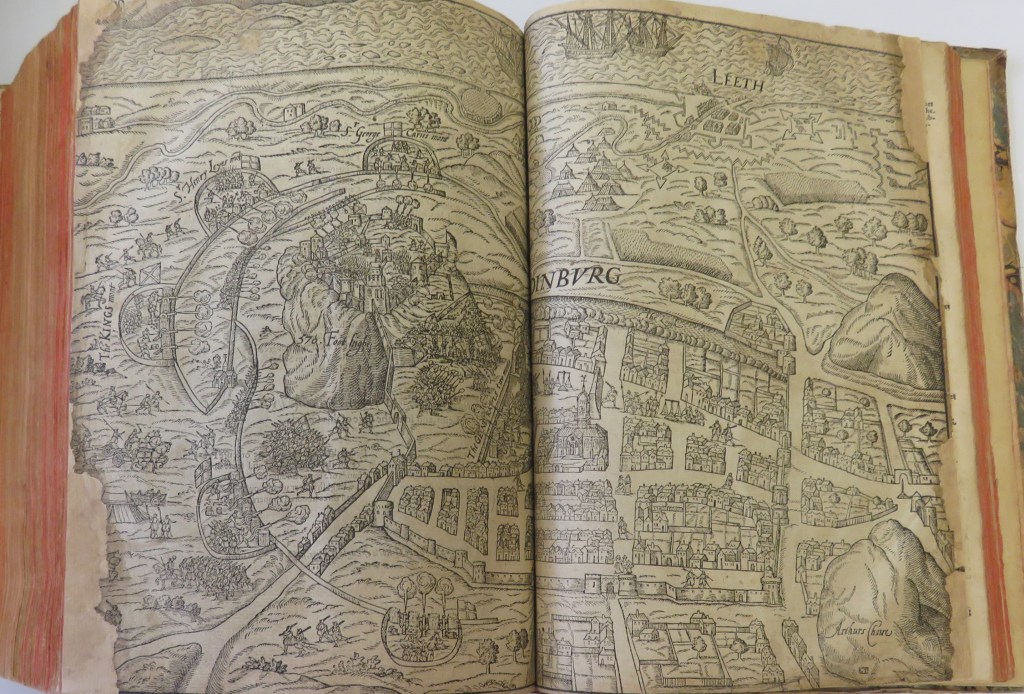 LEETH
St George Caries mont
St Henry leys mont
To KINGs mont
576. Foot high
DENBVRG
Arthurs chaire